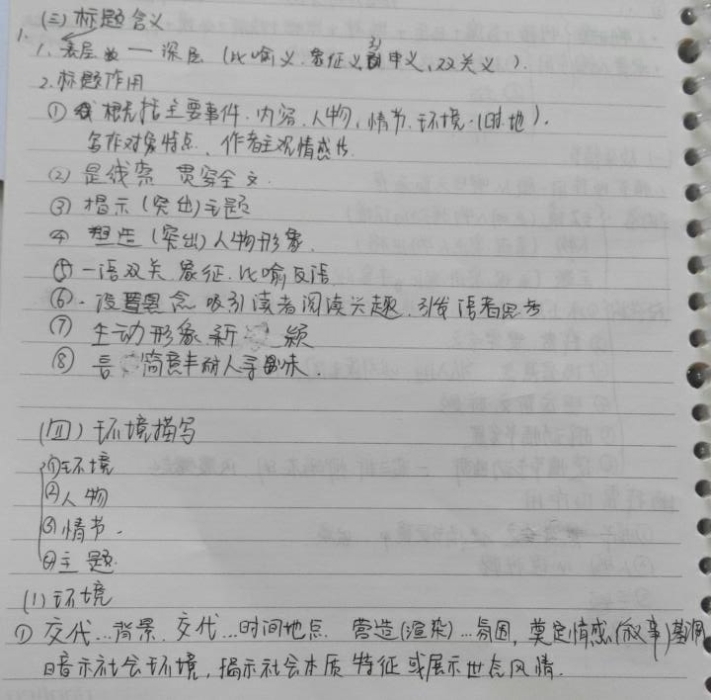 (三)标题含义
1. 表层义 — 深层 (比喻义.象征义.引申义,双关义).
2.标题作用
① 概括主要事件.内容.人物,情节.环境.(时.地).
写作对象特点、作者主观情感等.
② 是线索 贯穿全文.
③ 揭示(突出)主题
④ 塑造(突出)人物形象.
⑤ 一语双关 象征.比喻反语
⑥.设置悬念 吸引读者阅读兴趣.引发读者思考
⑦ 生动形象新颖
⑧ 言简意丰耐人寻味
(四)环境描写
①环境
②人物
③情节.
④主题.
(1)环境
① 交代...背景.交代...时间地点. 营造(渲染)...氛围,奠定情感(叙事)基调
暗示社会环境,揭示社会本质特征或展示世态风情.